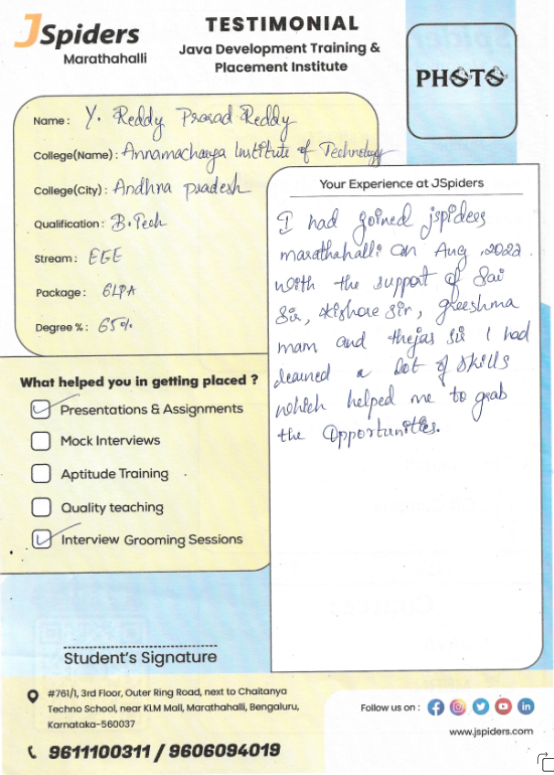 JSpiders
Marathahalli
TESTIMONIAL
Java Development Training &
Placement Institute
PHOTO
Name : Y. Reddy Prasad Reddy
College(Name) : Annamacharya Institute of Technology
College(City) : Andhra pradesh
Qualification : B.Tech
Stream : EEE
Package : 6LPA
Degree % : 65%
What helped you in getting placed ?
Presentations & Assignments
Mock Interviews
Aptitude Training
Quality teaching
Interview Grooming Sessions
Your Experience at JSpiders
I had goined jspiders
marathahalli on Aug, 2022
with the support of Sai
Sir, kishore Sir, greeshma
mam and thejas sir I had
learned a lot of skills
which helped me to grab
the Opportunities.
Student's Signature
#761/1, 3rd Floor, Outer Ring Road, next to Chaitanya
Techno School, near KLM Mall, Marathahalli, Bengaluru,
Karnataka-560037
9611100311 / 9606094019
Follow us on :
www.jspiders.com